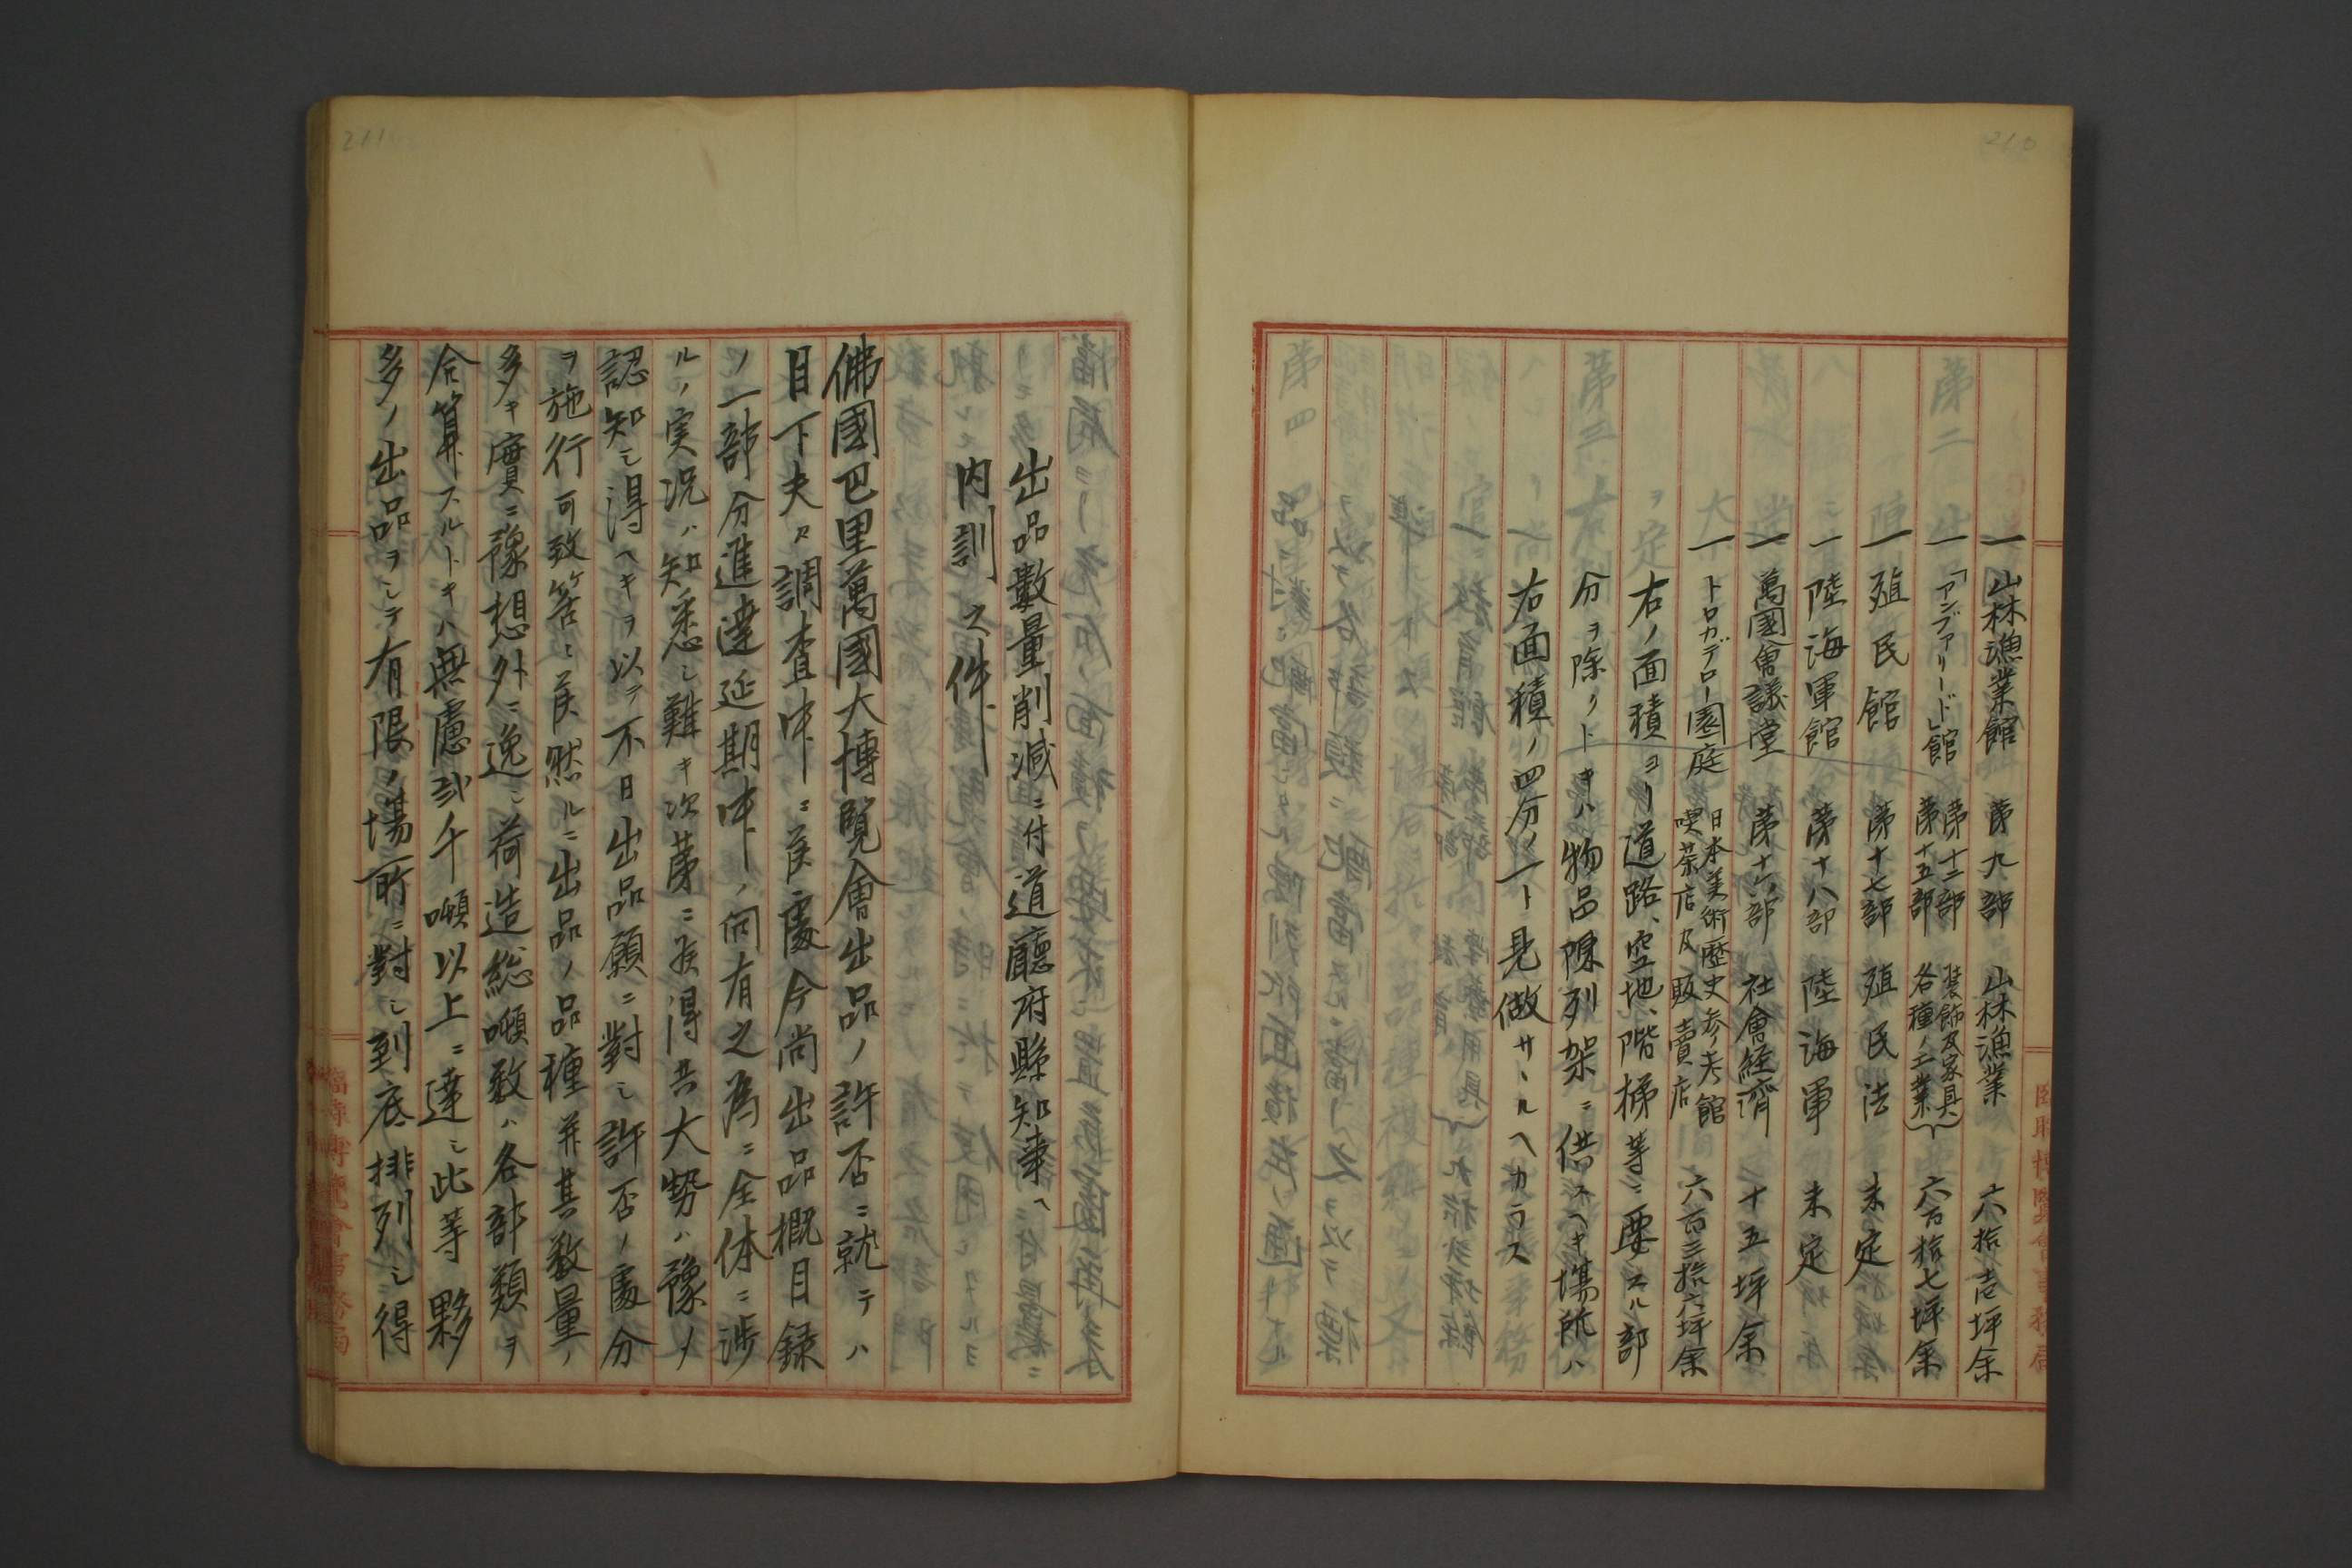 210
一 山林漁業館 第九部 山林漁業 六拾壱坪余
一 「アンヴァリード」館 第十二部 第十五部 装飾及家具 各種ノ工業 六百拾七坪余
一 殖民館 第十七部 殖民法 未定
一 陸海軍館 第十八部 陸海軍 未定
一 萬國會議堂 第十六部 社會経濟 二十五坪余
一 トロカデロー園庭 日本美術歴史参考館 喫茶店及販賣店 六百三拾六坪余
右ノ面積ヨリ道路、空地、階梯等ニ要スル部
分ヲ除クトキハ物品陳列架ニ供スヘキ塲所ハ
右面積ノ四分ノ一ト見做サヽルヘカラス
臨時博覧會事務局
211
出品數量削減ニ付道廳府縣知事ヘ
内訓之件
佛國巴里萬國大博覽會出品ノ許否ニ就テハ
目下夫々調査中ニ候處今尚出品概目録
ノ一部分進達延期中ノ向有之為ニ全体ニ渉
ルノ実况ハ知悉シ難キ次第ニ候得共大勢ハ豫メ
認知シ得ヘキヲ以テ不日出品願ニ對シ許否ノ處分
ヲ施行可致筈ニ候然ルニ出品ノ品種并其数量ノ
多キ實ニ豫想外ニ逸シ荷造総噸数ハ各部類ヲ
合算スルトキハ無慮弐千噸以上ニ達シ此等夥
多ノ出品ヲシテ有限ノ塲所ニ對シ到底排列シ得
臨時博覧會事務局